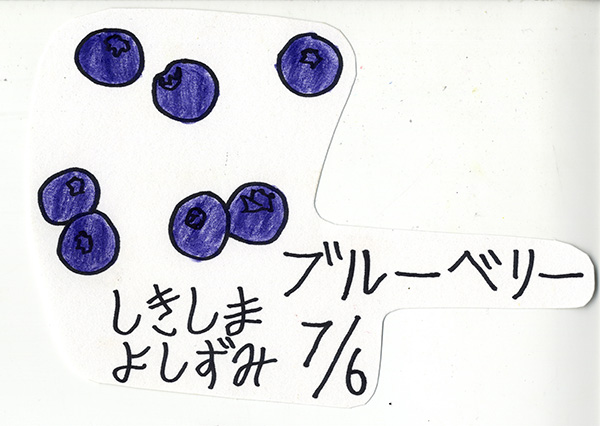 ブルーベリー
しきしま
よしずみ
7/6